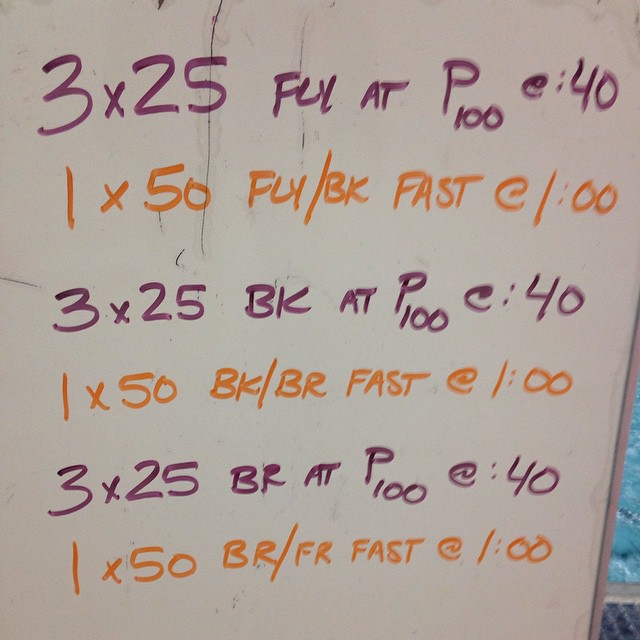 3x25 FLY AT P100 @ :40
1 x 50 FLY/BK FAST @ 1:00
3x25 BK AT P100 @ :40
1 x 50 BK/BR FAST @ 1:00
3x25 BR AT P100 @ :40
1 x 50 BR/FR FAST @ 1:00